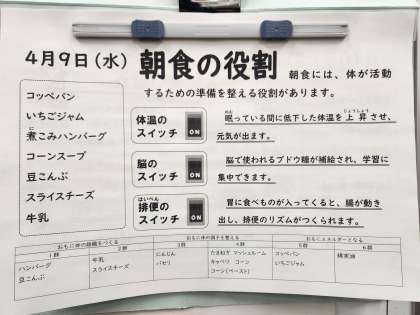 4月9日(水) 朝食の役割 朝食には、体が活動
するための準備を整える役割があります。
コッペパン
いちごジャム
煮こみハンバーグ
コーンスープ
豆こんぶ
スライスチーズ
牛乳
体温の
スイッチ
ON
眠っている間に低下した体温を上昇させ、
元気が出ます。
脳の
スイッチ
ON
脳で使われるブドウ糖が補給され、学習に
集中できます。
排便の
スイッチ
ON
胃に食べものが入ってくると、腸が動き
出し、排便のリズムがつくられます。
おもに体の組織をつくる おもに体の調子を整える おもにエネルギーとなる
1群 2群 3群 4群 5群 6群
ハンバーグ 牛乳 にんじん たまねぎ マッシュルーム コッペパン 綿実油
豆こんぶ スライスチーズ パセリ キャベツ コーン いちごジャム
コーン(ペースト)